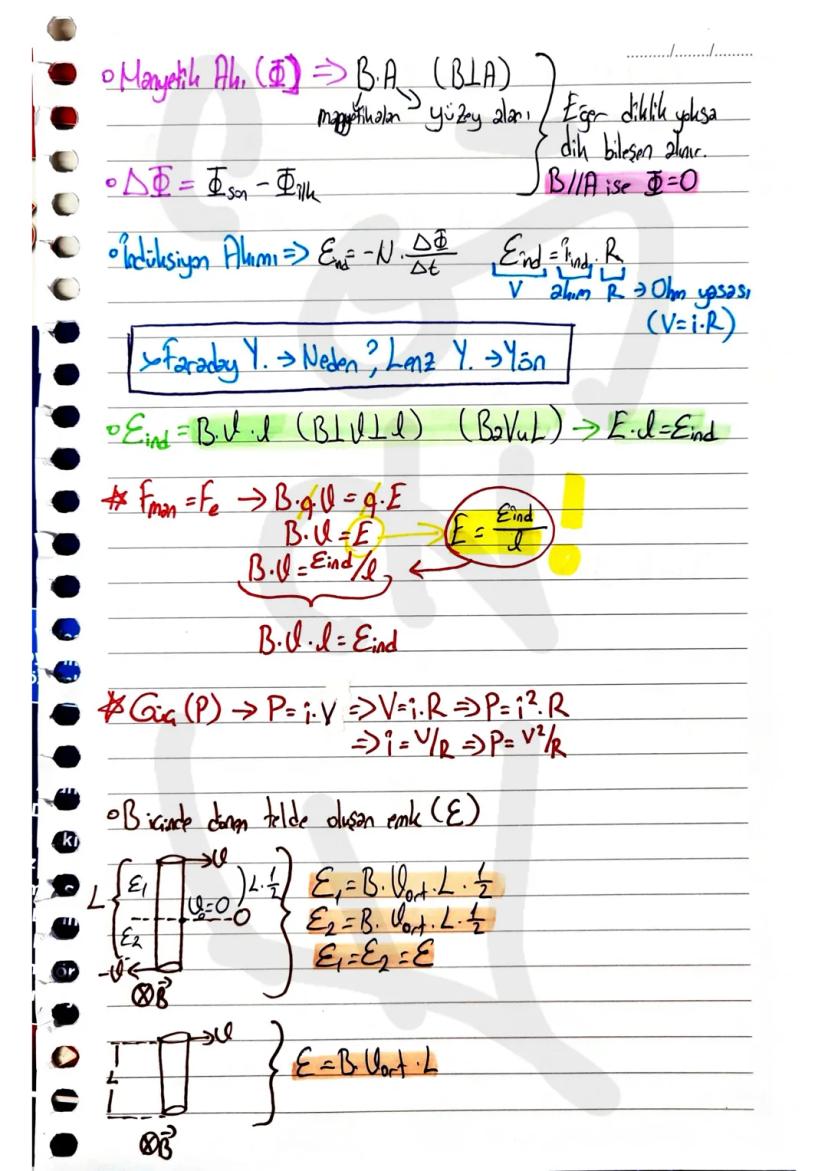 ......../......../........
• Manyetik Akı (Φ) ⇒ B.A (B⊥A)
manyetik alan yüzey alanı
Eğer diklik yoksa
dik bileşen alınır.
B//A ise Φ=0
• ΔΦ = Φson - Φilk
• İndüksiyon Akımı ⇒ Ɛind = -N. ΔΦ/Δt Ɛind = iind. R
V akım R → Ohm yasası
(V=i.R)
> Faraday Y. → Neden?, Lenz Y. → Yön
• Ɛind = B.V.l (B⊥V⊥l) (BaVuL) → E.l = Ɛind
* Fman = Fe → B.q.V = q.E
B.V = E → E = Ɛind/l !
B.V = Ɛind/l
B.V.l = Ɛind
* Güç (P) → P = i.V ⇒ V=i.R ⇒ P=i².R
⇒ i = V/R ⇒ P = V²/R
• B içinde dönen telde oluşan emk (Ɛ)
V
L Ɛ1 V0=0 L.1/2 O
Ɛ2
-V
⊗B
Ɛ1 = B.Vort.L.1/2
Ɛ2 = B.Vort.L.1/2
Ɛ1 = Ɛ2 = Ɛ
V
L
Ɛ = B.Vort.L
⊗B
ki
ör